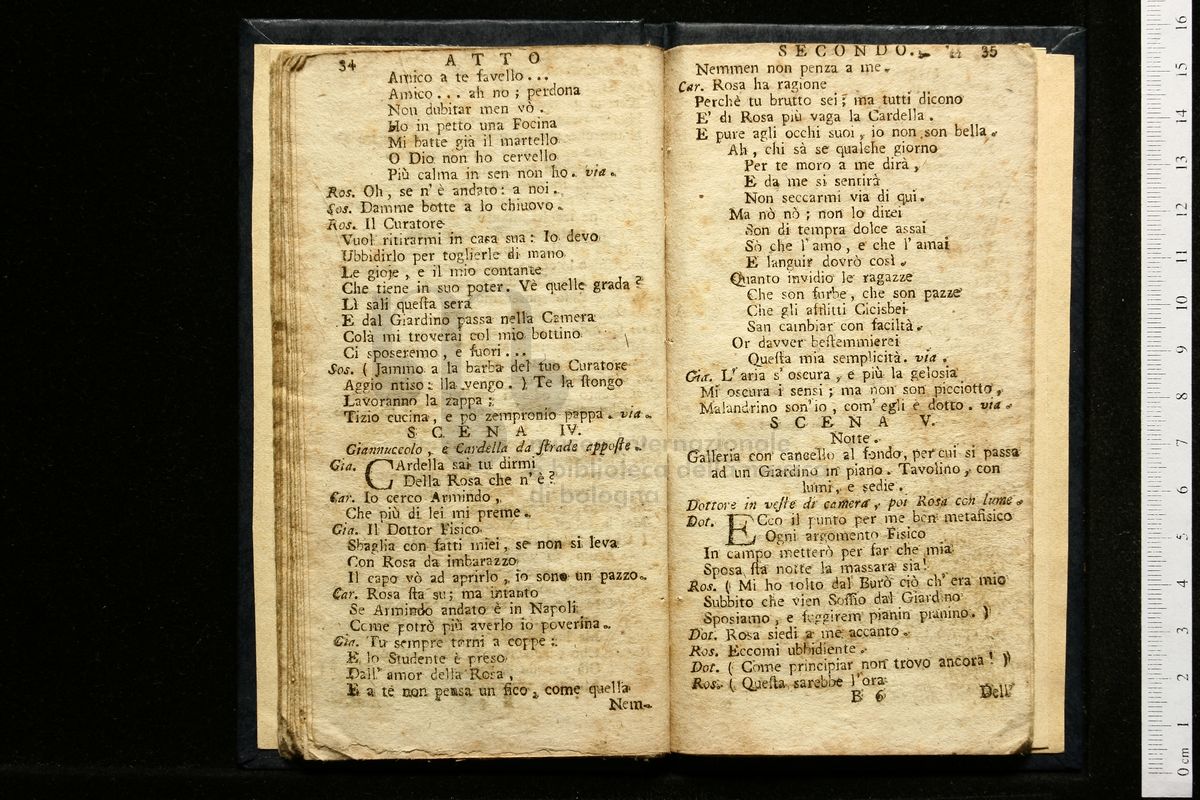 34 ATTO
Amico a te favello...
Amico... ah no; perdona
Non dubitar men vò.
Ho in petto una Focina
Mi batte già il martello
O Dio non ho cervello
Più calma in sen non ho. via.
Ros. Oh, se n'è andato: a noi.
Sos. Damme botte a lo chiuovo.
Ros. Il Curatore
Vuol ritirarmi in casa sua: Io devo
Ubbidirlo per toglierle di mano
Le gioje, e il mio contante
Che tiene in suo poter. Vè quelle grada?
Lì sali questa sera
E dal Giardino passa nella Camera
Colà mi troverai col mio bottino
Ci sposeremo, e fuori...
Sos. (Jammo a la barba del tuo Curatore
Aggio ntiso: lla vengo.) Te la stongo
Lavoranno la zappa;
Tizio cucina, e po zempronio pappa. via.
SCENA IV.
Giannuccolo, e Cardella da strade apposte.
Gia. CArdella sai tu dirmi
Della Rosa che n'è?
Car. Io cerco Armindo,
Che più di lei mi preme.
Gia. Il Dottor Fisico
Sbaglia con fatti miei, se non si leva
Con Rosa da imbarazzo
Il capo vò ad aprirlo, io sono un pazzo.
Car. Rosa sta su; ma intanto
Se Armindo andato è in Napoli
Come potrò più averlo io poverina.
Gia. Tu sempre torni a coppe:
E lo Studente è preso
Dall' amor della Rosa,
E a te non pensa un fico, come quella
Nem-
SECONDO. 35
Nemmen non penza a me.
Car. Rosa ha ragione
Perchè tu brutto sei; ma tutti dicono
E' di Rosa più vaga la Cardella.
E pure agli occhi suoi, io non son bella.
Ah, chi sà se qualche giorno
Per te moro a me dirà,
E da me si sentirà
Non seccarmi via di qui.
Ma nò nò; non lo direi
Son di tempra dolce assai
Sò che l'amo, e che l'amai
E languir dovrò così.
Quanto invidio le ragazze
Che son furbe, che son pazze
Che gli afflitti Cicisbei
San cambiar con faciltà.
Or davver bestemmierei
Questa mia semplicità. via.
Gia. L'aria s'oscura, e più la gelosia
Mi oscura i sensi; ma non son picciotto,
Malandrino son'io, com'egli è dotto. via.
SCENA V.
Notte.
Galleria con cancello al fondo, per cui si passa
ad un Giardino in piano. Tavolino, con
lumi, e sedie.
Dottore in veste di camera, poi Rosa con lume.
Dot. ECco il punto per me ben metafisico
Ogni argomento Fisico
In campo metterò per far che mia
Sposa sta notte la massara sia!
Ros. (Mi ho tolto dal Burò ciò ch'era mio
Subbito che vien Soffio dal Giardino
Sposiamo, e fuggirem pianin pianino.)
Dot. Rosa siedi a me accanto.
Ros. Eccomi ubbidiente.
Dot. (Come principiar non trovo ancora!)
Ros. (Questa sarebbe l'ora
B 6 Dell'
museo internazionale
e biblioteca della musica
di bologna
0 cm 1 2 3 4 5 6 7 8 9 10 11 12 13 14 15 16